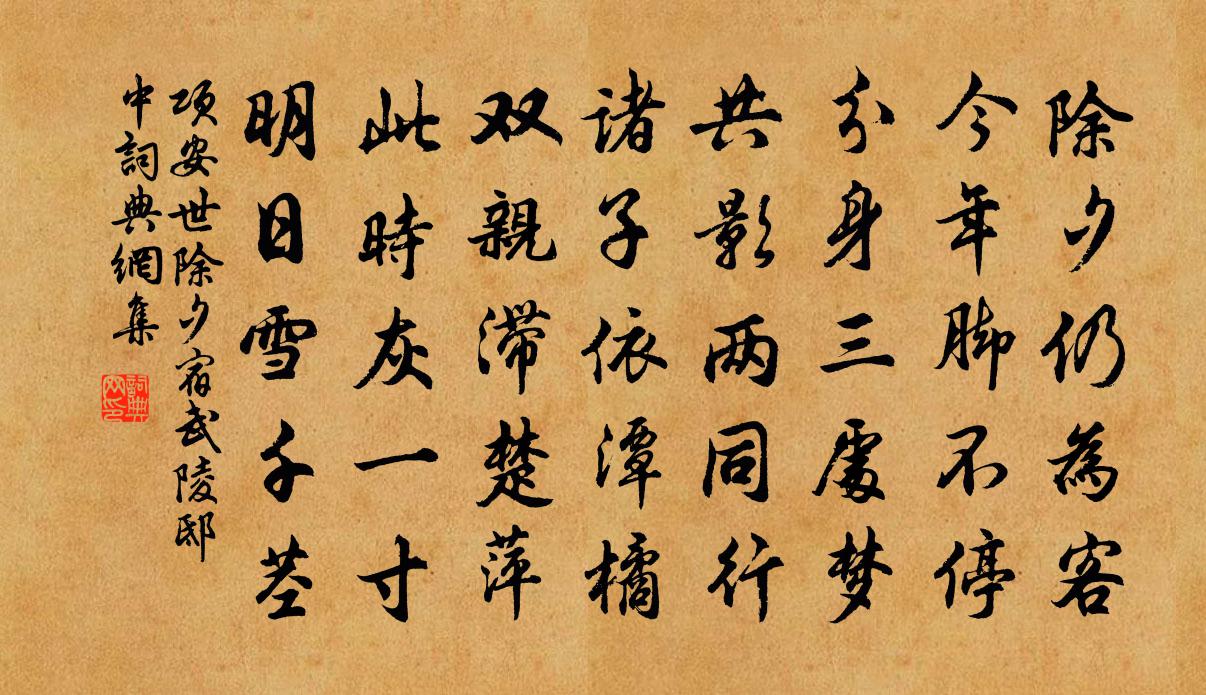 除夕仍為客
今年脚不停
分身三處梦
共影两同行
诸子依潭橘
双親滞楚萍
此時灰一寸
明日雪千茎
项安世除夕宿武陵邸
中詞典網集
詞典網印